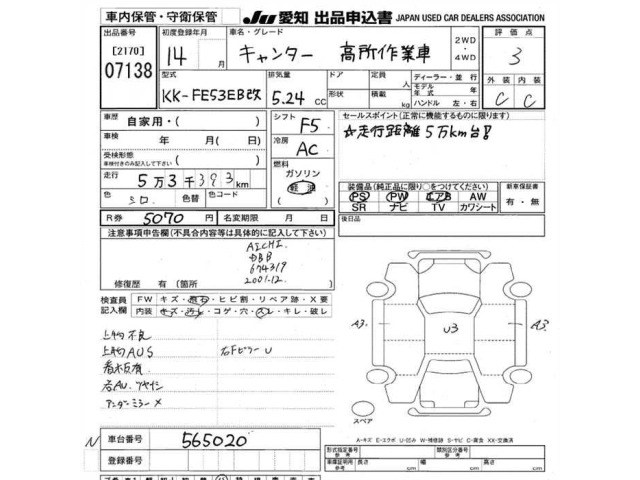 車内保管・守衛保管 JU 愛知 出品申込書 JAPAN USED CAR DEALERS ASSOCIATION
出品番号 初度登録年月 車名・グレード 評価点
[2170] 07138 14 月 キャンター 高所作業車 2WD ・ 4WD 3
型式 排気量 ドア 定員 人 ディーラー・並行 外装 内装
KK-FE53EB改 5.24 CC 形状 積載 kg モデル年式 年 ハンドル 左・右 C C
車歴 自家用・( ) シフト F5 セールスポイント(正常に機能するものに限ります)
車検 年 月( 日) 冷房 AC ☆走行距離5万km台!
受検形態 車検付きのみ記入して下さい ( )
走行 5万3千393km 燃料 ガソリン 軽油 ( )
色 シロ 色替 色コード
装備品(純正品に限り○をつけてください) 新車保証書
PS PW エアB AW 有・無
SR ナビ TV カワシート
R券 5070 円 名変期限 月 日 後日品
注意事項申告欄(不具合内容等は具体的に記入して下さい)
AICHI.
674319
2001.12.
修復歴 有 (箇所
検査員記入欄 FW キズ・飛石・ヒビ割・リペア跡・X要
内装 キズ・汚レ・コゲ・穴・スレ・キレ・破レ
上物不良
上物AUS 右Fピラー U
看板痕
アンダーミラー ×
A3. U3 A3.
スペア
N 車台番号 565020
登録番号
A-キズ E-エクボ U-凹み W-補修跡 S-サビ C-腐食 XX-交換済
形式指定番号 類別区分番号
車庫証明用参考 長さ cm 幅 cm 高さ cm